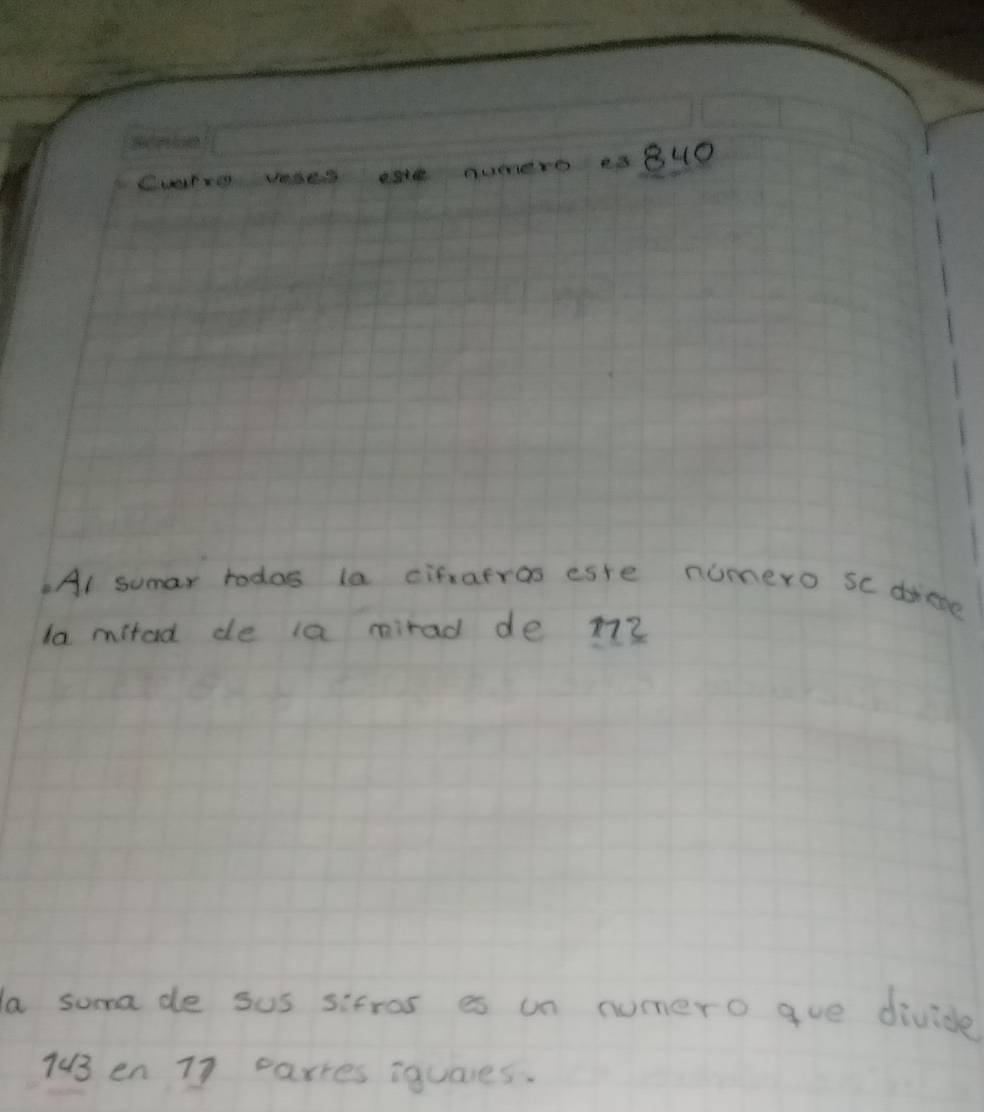 Cuatro veses este numero es 840
.Al sumar todos la cifratros este número se
la mitad de la mitad de 112
la suma de sus sifras es un numero que divide
143 en 11 partes iguales.